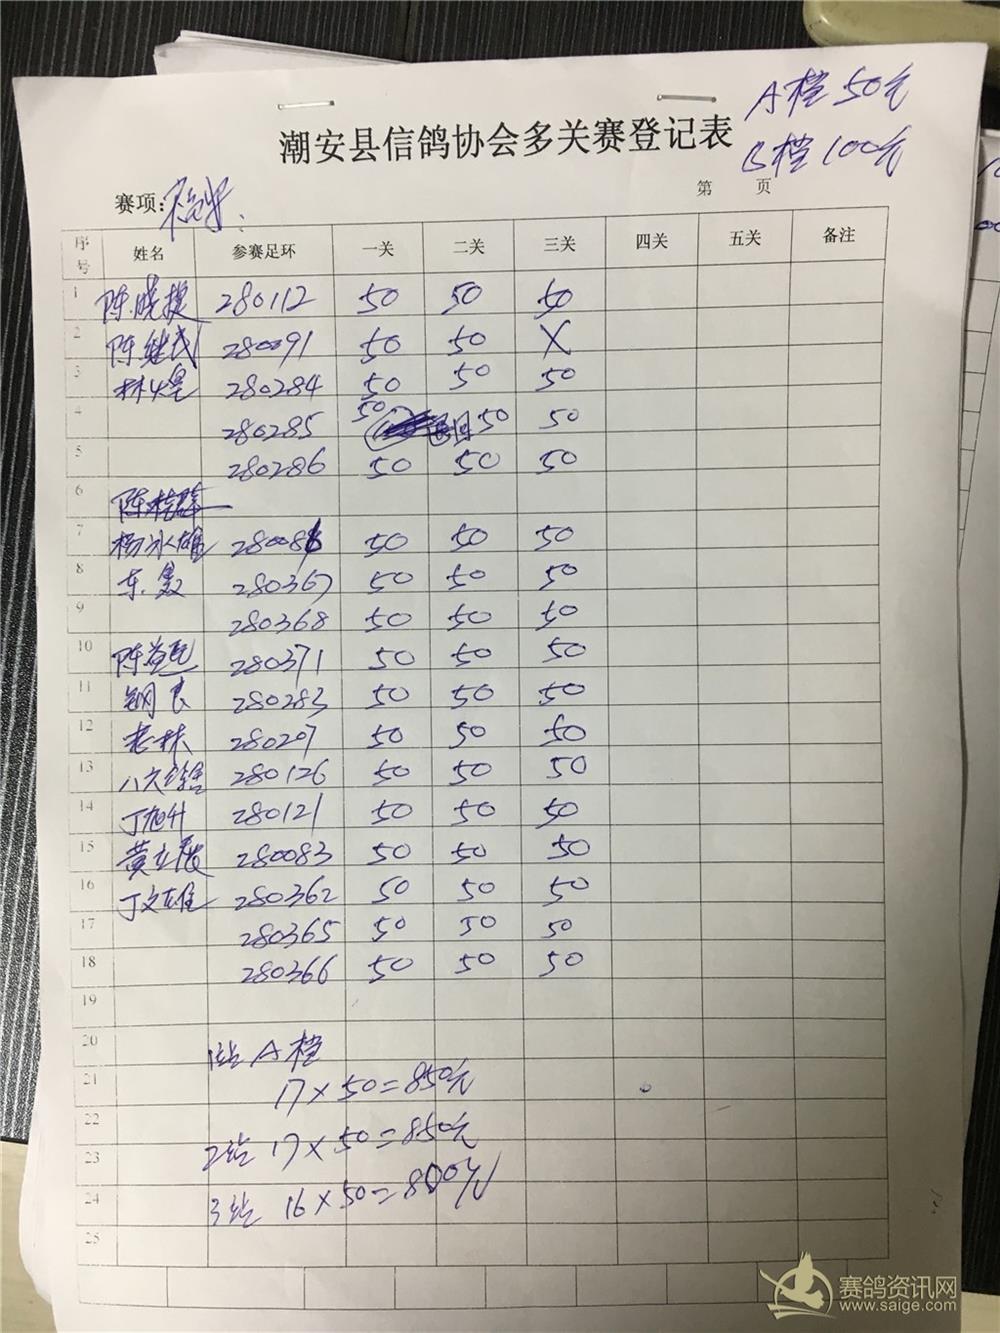 A档 50元
B档 100元
潮安县信鸽协会多关赛登记表
赛项:
第 页
序号 姓名 参赛足环 一关 二关 三关 四关 五关 备注
1 陈晓捷 280112 50 50 50
2 陈继成 280091 50 50 X
3 林煌 280284 50 50 50
4 280285 50 50 50
5 280286 50 50 50
6
7 杨冰雄 28008 50 50 50
8 280367 50 50 50
9 280368 50 50 50
10 陈 280371 50 50 50
11 钢良 280283 50 50 50
12 老林 280207 50 50 50
13 八六 280126 50 50 50
14 丁旭升 280121 50 50 50
15 黄立 280083 50 50 50
16 丁文雄 280362 50 50 50
17 280365 50 50 50
18 280366 50 50 50
19
20 1站 A档
21 17×50=850元
22
23 2站 17×50=850元
24 3站 16×50=800元
25
赛鸽资讯网
www.saige.com